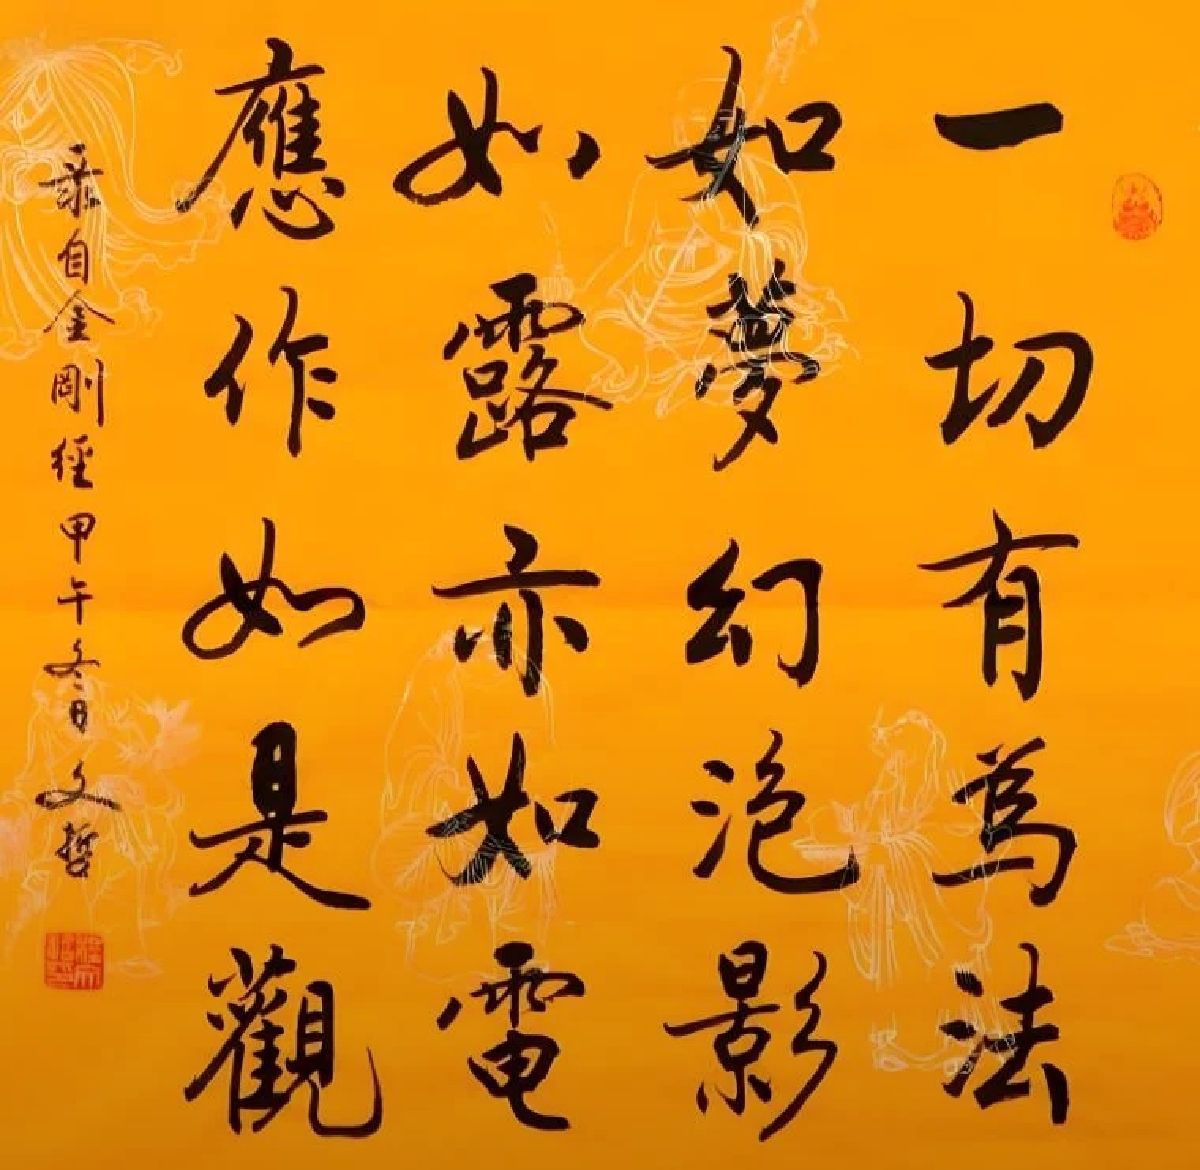 一切有為法
如夢幻泡影
如露亦如電
應作如是觀
录自金剛經甲午冬日文哲